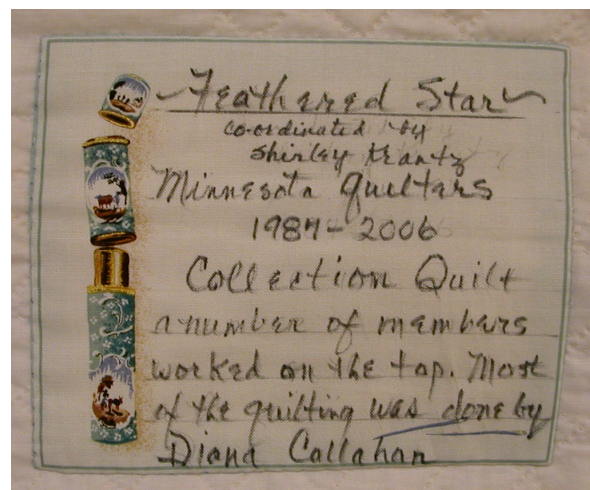 ~Feathered Star~
co-ordinated by
Shirley Krantz
Minnesota Quilters
1987-2006
Collection Quilt
a number of members
worked on the top. Most
of the quilting was done by
Diana Callahan